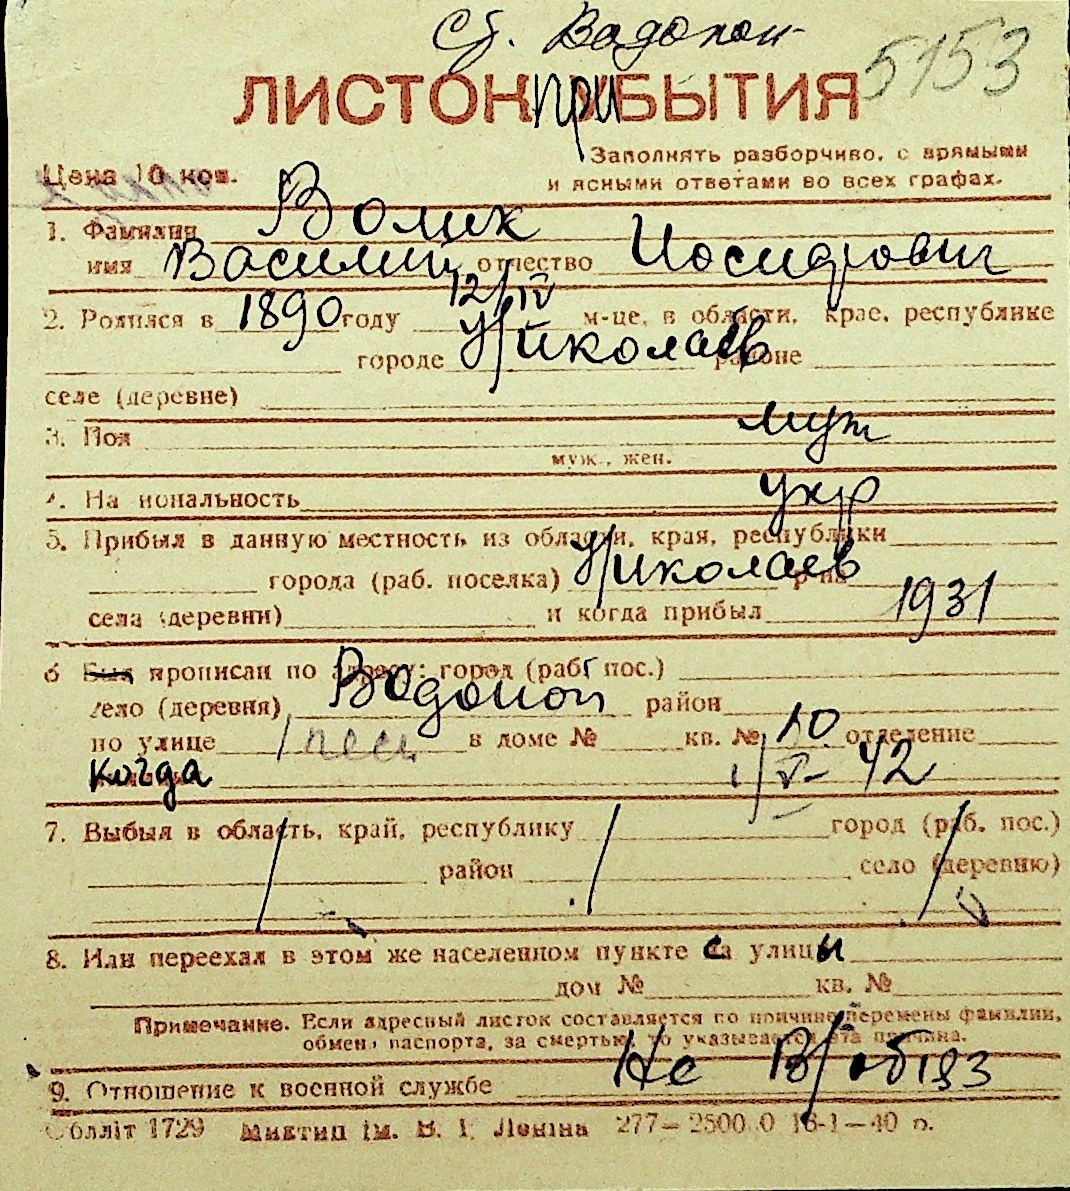 Сб. Вадопой
5153
ЛИСТОК ПРИБЫТИЯ
Заполнять разборчиво, с прямыми
Цена 10 коп.
и ясными ответами во всех графах.
1. Фамилия Волик
имя Василий отчество Иосифович
12/IV
2. Родился в 1890 году м-це, в области, крае, республике
городе Н/иколаев районе
селе (деревне)
3. Пол муж
муж., жен.
4. Национальность укр
5. Прибыл в данную местность из области, края, республики
города (раб. поселка) Н/иколаев р-на
села (деревни) и когда прибыл 1931
6 Был прописан по адресу: город (раб. пос.)
село (деревня) Водопой район
по улице 1 в доме № кв. № 10 отделение
когда 1/V- 42
7. Выбыл в область, край, республику город (раб. пос.)
район село (деревню)
8. Или переехал в этом же населенном пункте с улицы
дом № кв. №
Примечание. Если адресный листок составляется по причине перемены фамилии,
обмена паспорта, за смертью, то указывается эта причина.
9. Отношение к военной службе Не В/обяз
Обллiт 1729 Миктип iм. В. I. Ленiна 277—2500 0 16-1—40 р.